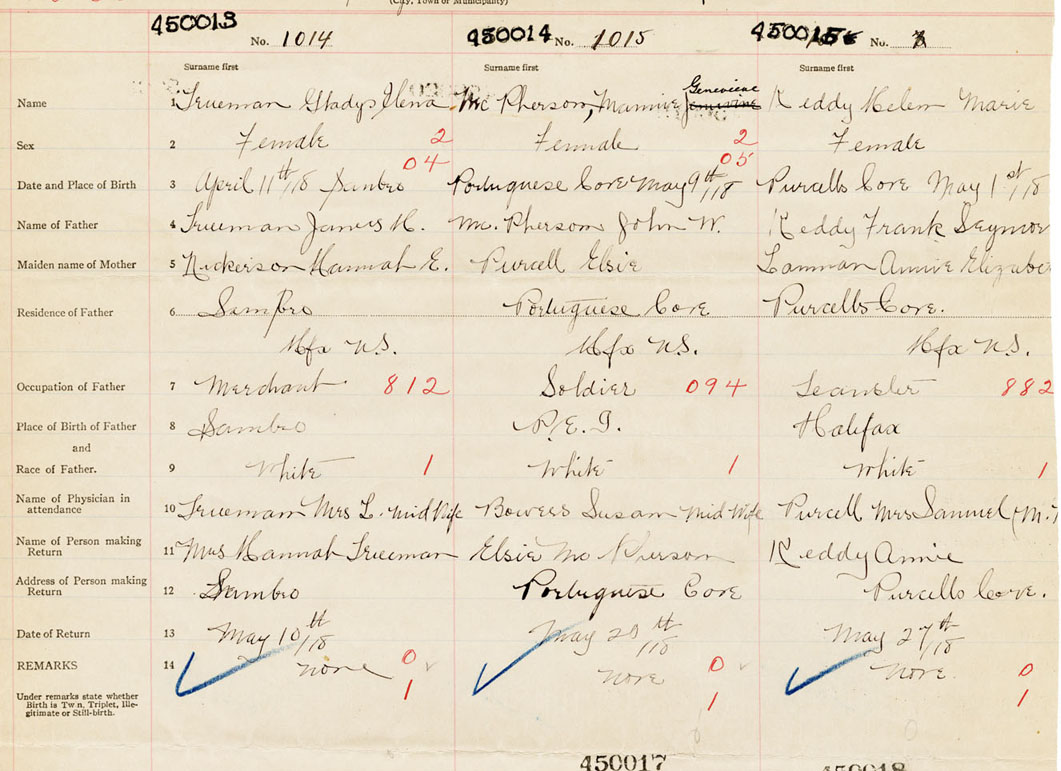 (City, Town or Municipality)
450013 450014 450015
No. 1014 No. 1015 No.
Surname first Surname first Surname first
Name 1 Trueman Gladys Ilena Mc Pherson, Mamie Genevieve Keddy Helen Marie
Sex 2 Female 2 Female 2 Female
04 05
Date and Place of Birth 3 April 11th/18 Sambro Portuguese Cove May 9th/18 Purcells Cove May 1st/18
Name of Father 4 Trueman James H. Mc. Pherson John W. Keddy Frank Seymour
Maiden name of Mother 5 Nickerson Hannah E. Purcell Elsie Annie Elizabe
Residence of Father 6 Sambro Portuguese Cove Purcells Cove.
Hfx N.S. Hfx N.S. Hfx N.S.
Occupation of Father 7 Merchant 812 Soldier 094 882
Place of Birth of Father 8 Sambro P.E.I. Halifax
and
Race of Father. 9 White 1 White 1 White 1
Name of Physician in
attendance 10 Trueman Mrs L. Mid Wife Bowers Susan Mid Wife Purcell Mrs Samuel (M.
Name of Person making
Return 11 Mrs Hannah Trueman Elsie Mc Pherson Keddy Annie
Address of Person making
Return 12 Sambro Portuguese Cove Purcells Cove.
Date of Return 13 May 10th/18 May 20th/18 May 27th/18
REMARKS 14 none 0 none 0 none 0
Under remarks state whether
Birth is Twin, Triplet, Ille-
gitimate or Still-birth.
1 1 1
450017 450018